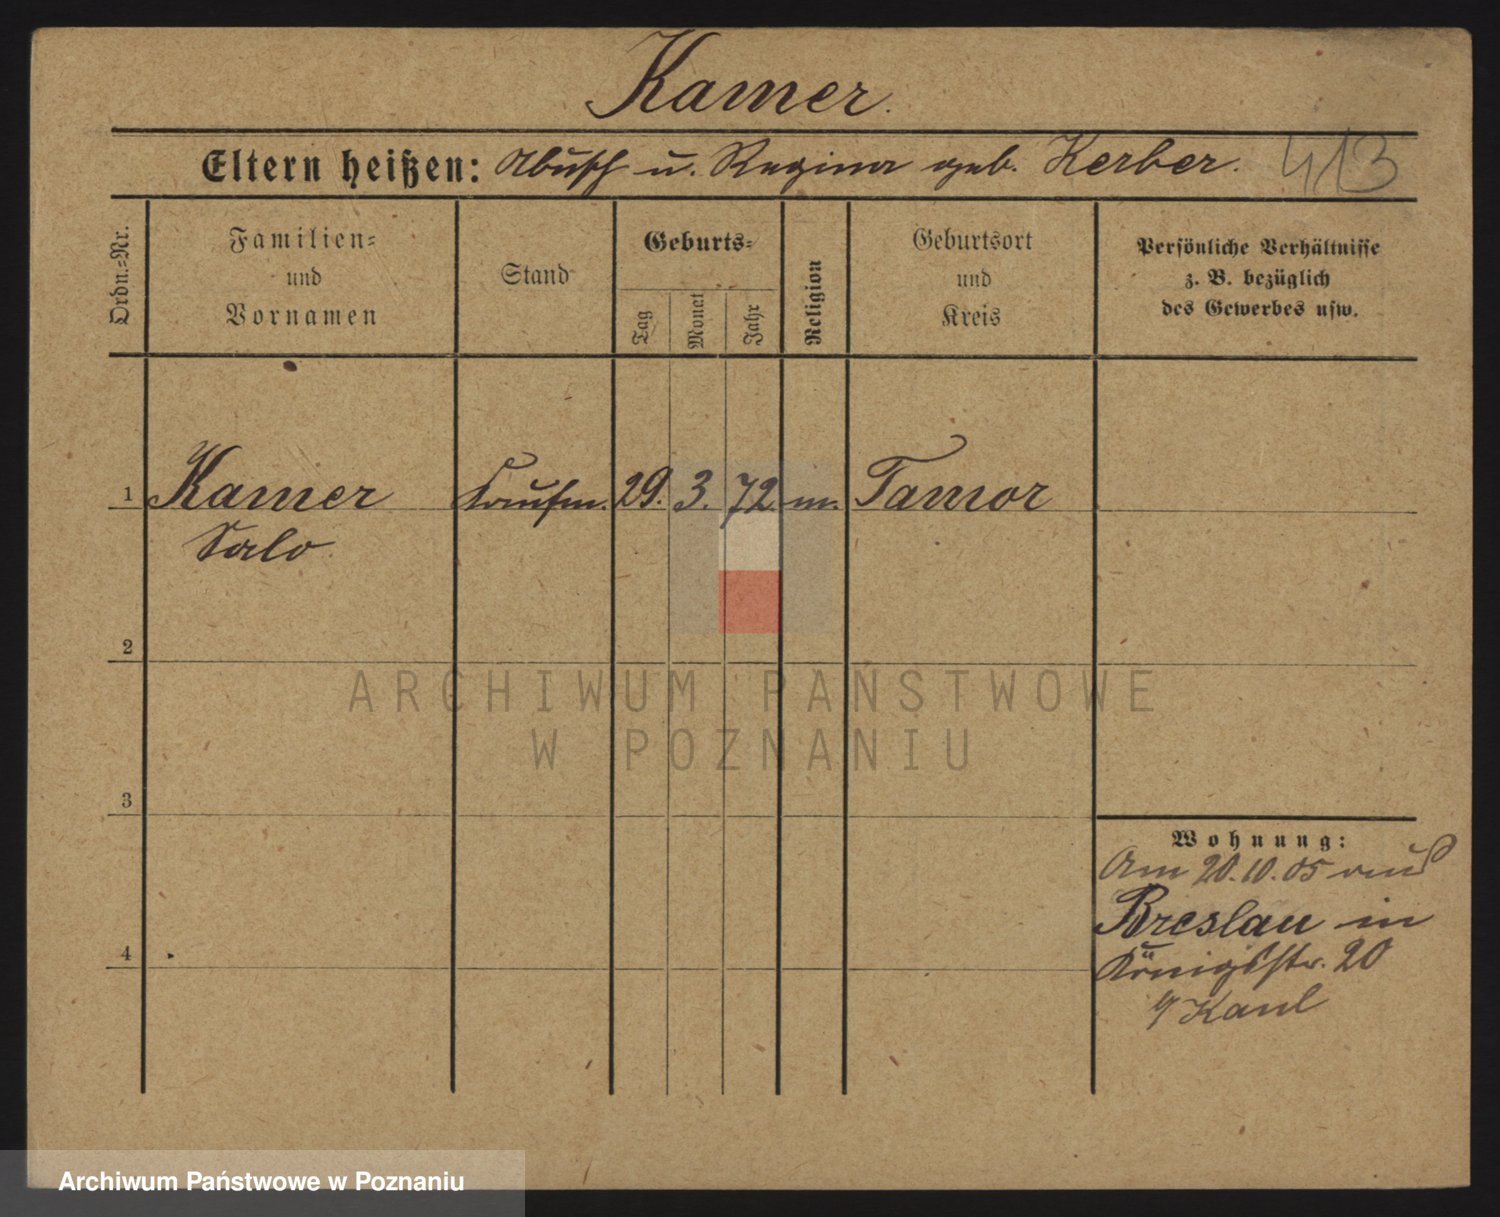 Kamer.
Eltern heißen: Abusch u. Regina geb. Kerber. 413
Ordn.-Nr.
Familien-
und
Vornamen
Stand
Geburts-
Tag
Monat
Jahr
Religion
Geburtsort
und
Kreis
Persönliche Verhältnisse
z. B. bezüglich
des Gewerbes usw.
1 Kamer Kaufm. 29. 3. 72 m. Tamor
Salo
2
ARCHIWUM PAŃSTWOWE
W POZNANIU
3
Wohnung:
Am 20.10.05 aus
Breslau in
4
Königsstr. 20
Kaul
Archiwum Państwowe w Poznaniu